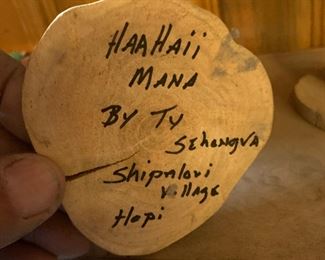 HAAHAII
MANA
BY TY
SEHONGVA
Shipalovi
Village
Hopi